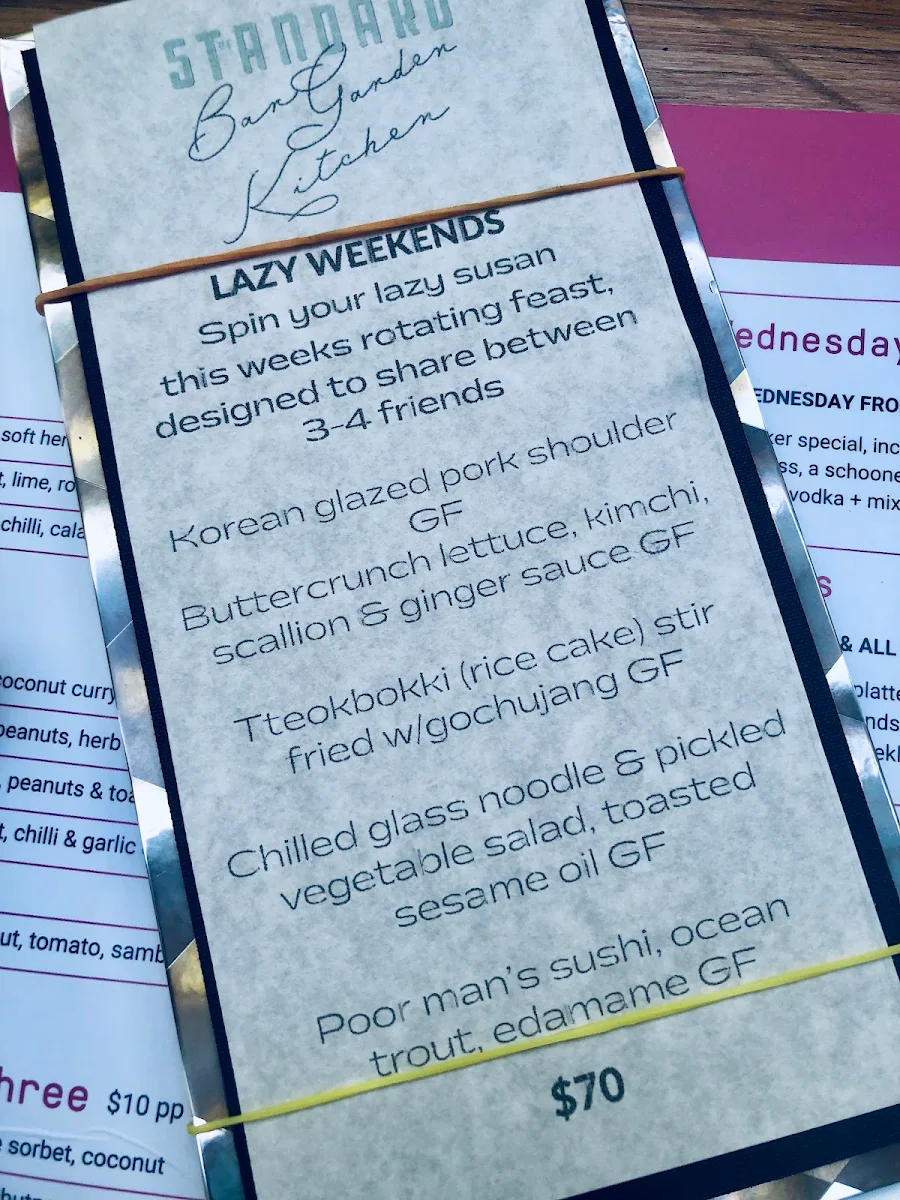 THE STANDARD
Bar Garden
Kitchen
LAZY WEEKENDS
Spin your lazy susan
this weeks rotating feast,
designed to share between
3-4 friends
Korean glazed pork shoulder
GF
Buttercrunch lettuce, kimchi,
scallion & ginger sauce GF
Tteokbokki (rice cake) stir
fried w/gochujang GF
Chilled glass noodle & pickled
vegetable salad, toasted
sesame oil GF
Poor man's sushi, ocean
trout, edamame GF
$70
soft
lime,
chilli,
coconut curry
peanuts, herb
peanuts &
chilli & garlic
tomato,
$10 pp
sorbet, coconut
ednesday
EDNESDAY
special,
a
vodka +
& ALL